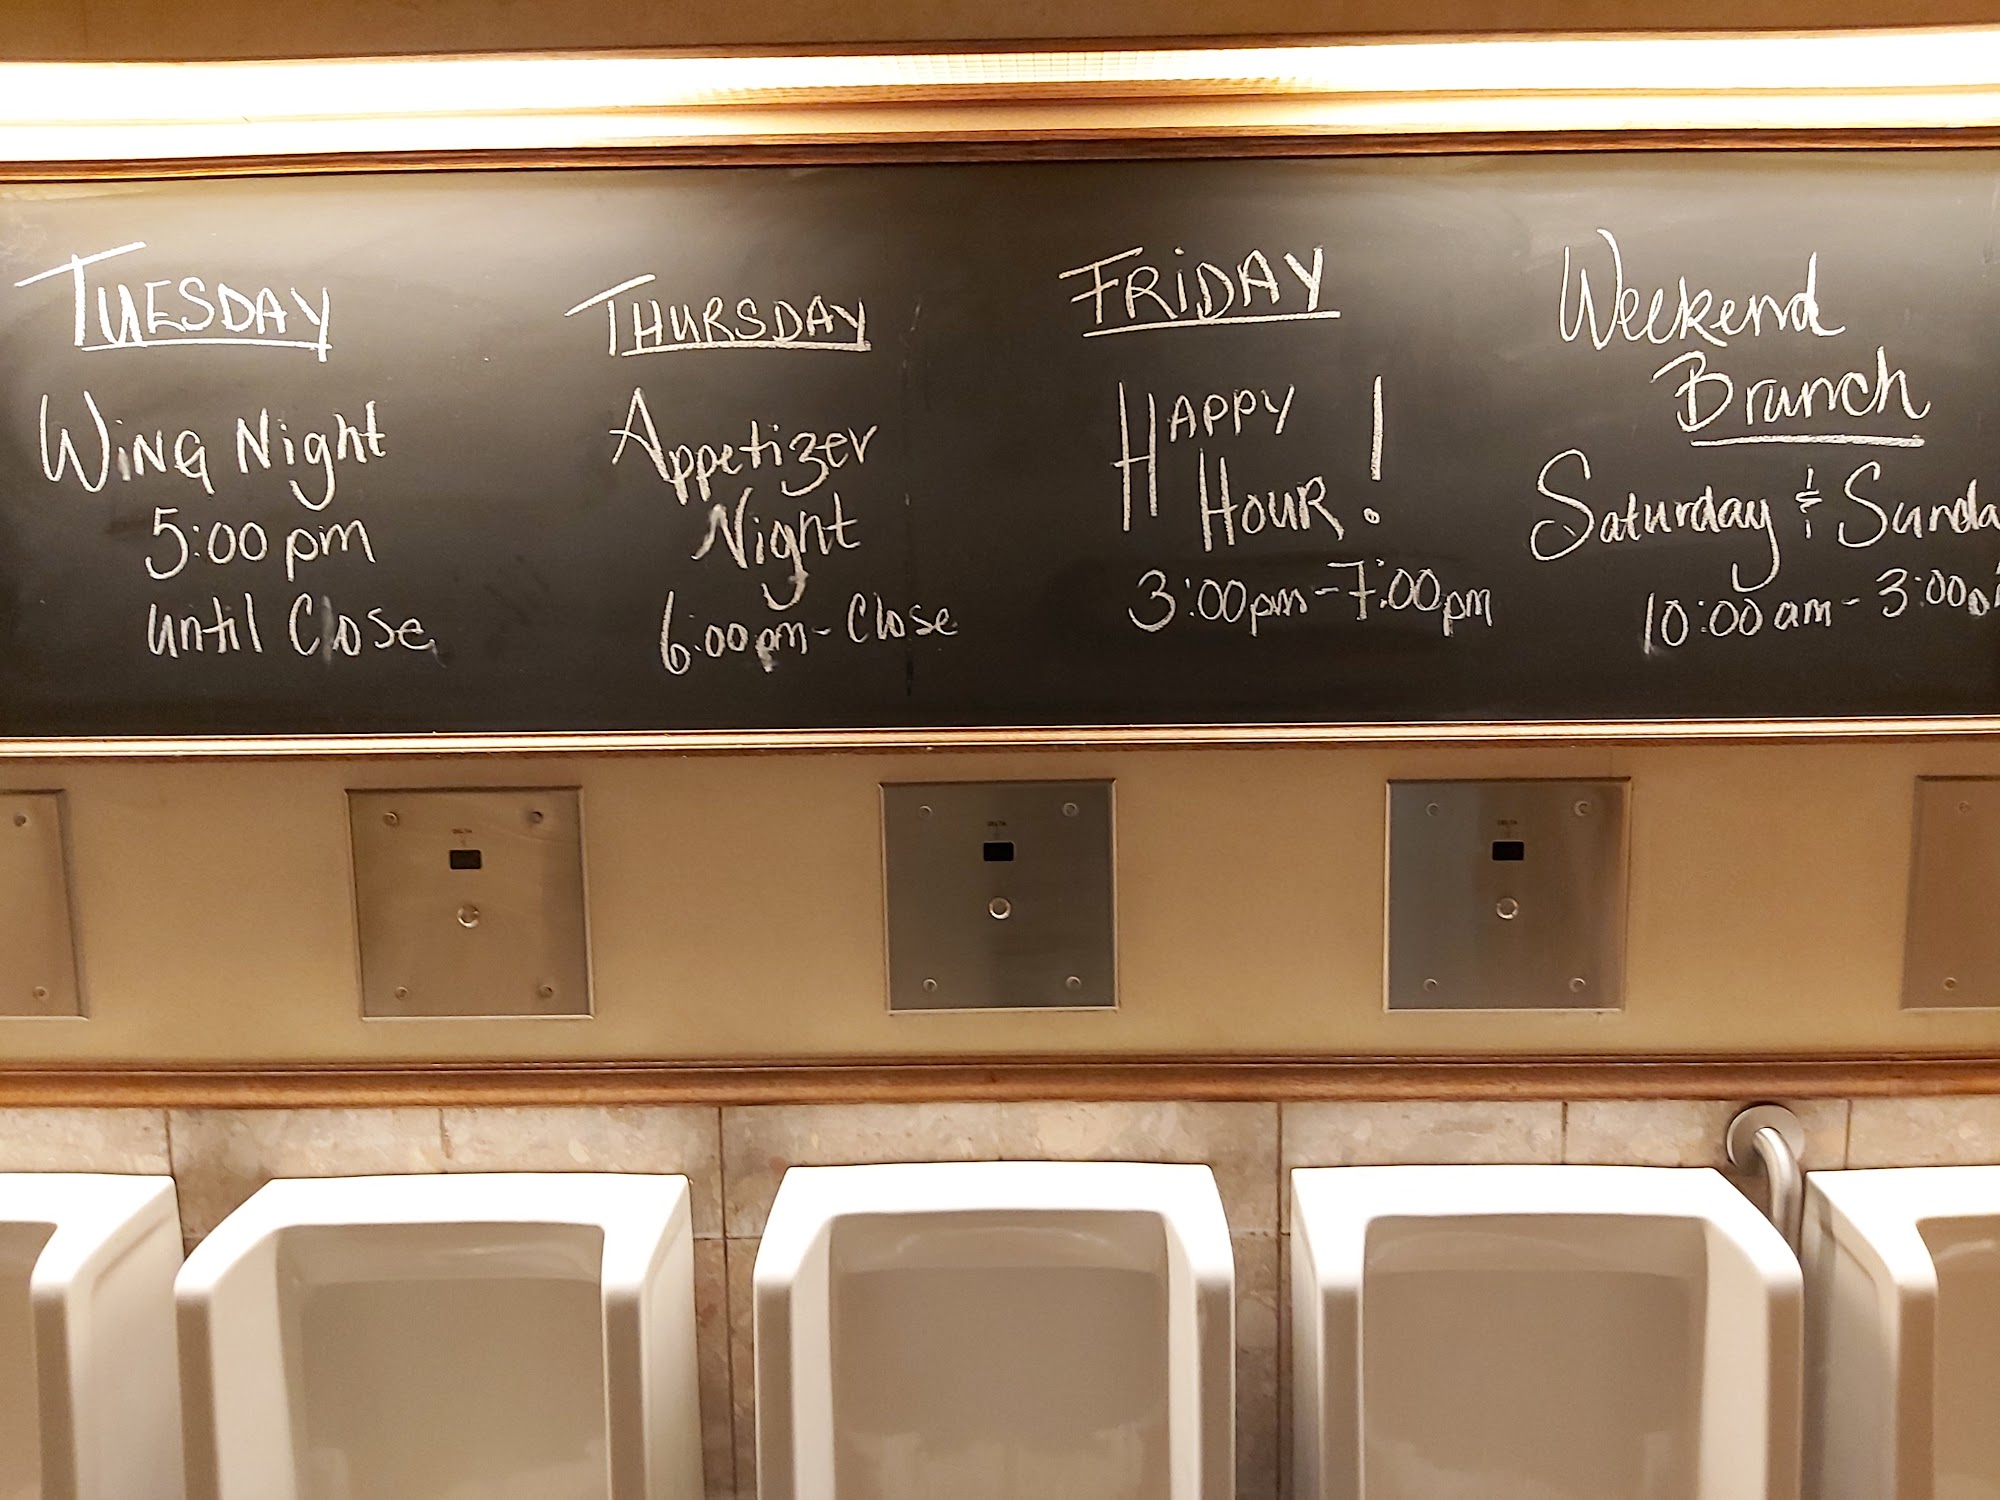 TUESDAY
WING Night
5:00 pm
until Close
THURSDAY
Appetizer
Night
6:00pm - Close
FRiDAY
HAPPY
HOUR!
3:00pm - 7:00pm
Weekend
Brunch
Saturday & Sunda
10:00 am - 3:00p
DELTA
DELTA
DELTA